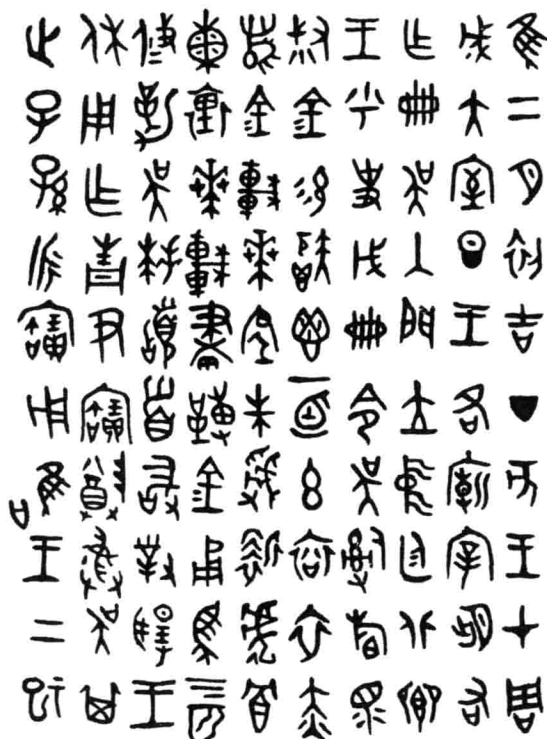 隹二月初吉丁亥王才周
成大室旦王各廟宰朏右
乍冊吳入門立中廷北鄉
王乎史戊冊令吳𤔲旃眔
叔金易秬鬯一卣玄袞衣赤
舄金車𠦪㡇朱虢靳虎冟
熏裏𠦪較畫𩌏金甬馬四匹
攸勒吳拜稽首敢對揚王
休用乍青尹寶尊彝吳其
世子孫永寶用唯王二祀